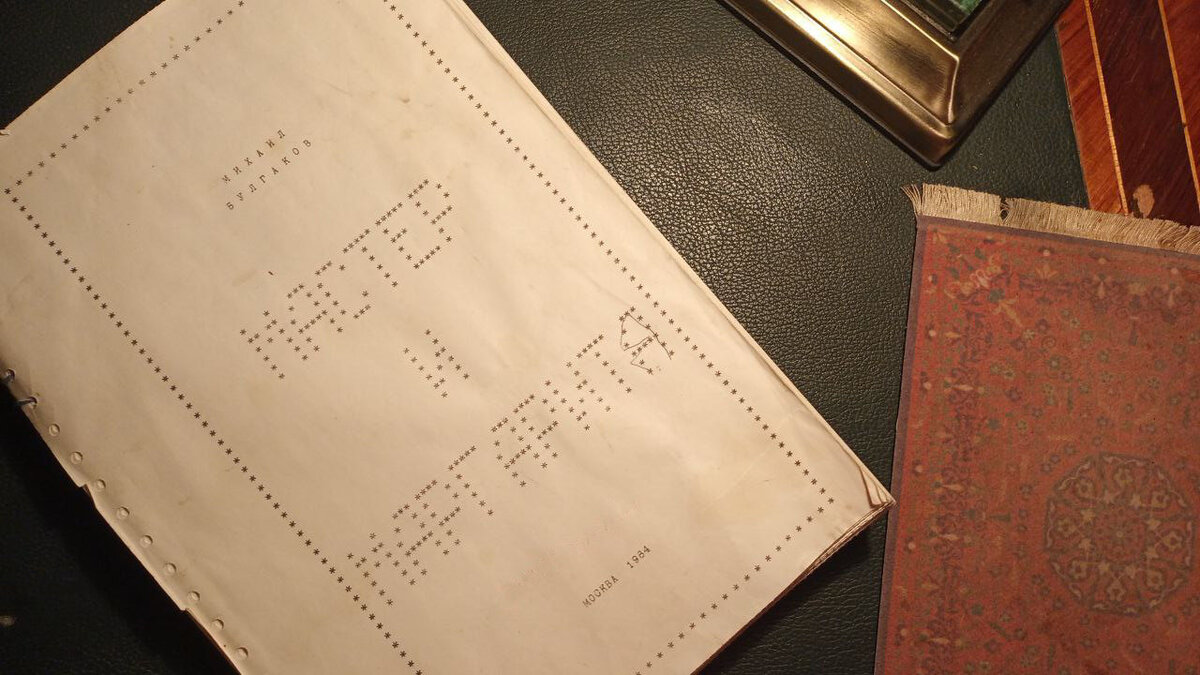 МИХАИЛ
БУЛГАКОВ
МАСТЕР
И
МАРГАРИТА
МОСКВА 1984